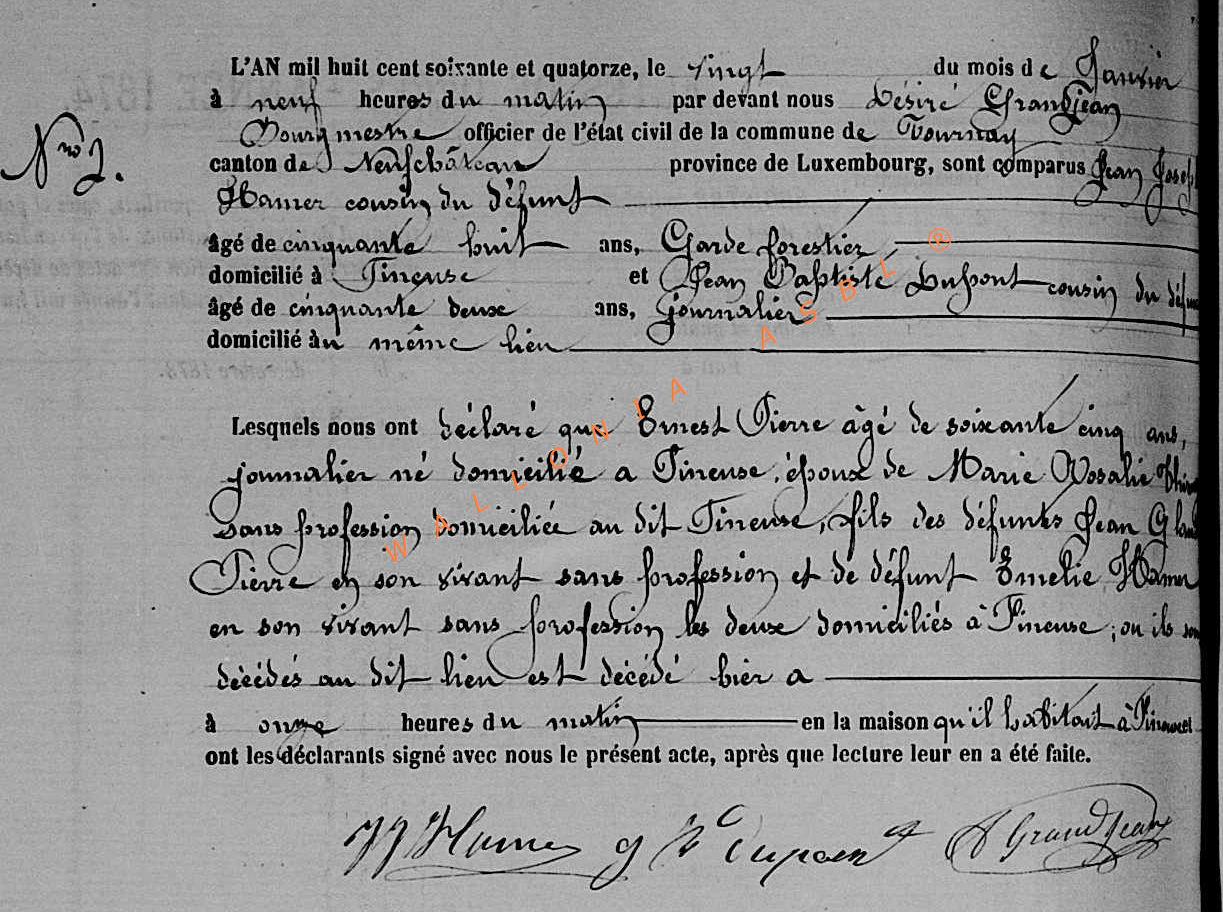 L'AN mil huit cent soixante et quatorze, le vingt du mois de Janvier
à neuf heures du matin par devant nous Désiré Grandjean
Bourgmestre officier de l'état civil de la commune de Tournay
Nro 2.
canton de Neufchâteau province de Luxembourg, sont comparus Jean Joseph
Hamer cousin du défunt
âgé de cinquante huit ans, Garde forestier
domicilié à Tineuse et Jean Baptiste Dupont cousin du défun
âgé de cinquante deux ans, journalier
domicilié àu même lieu
Lesquels nous ont déclaré que Ernest Pierre âgé de soixante cinq ans,
journalier né domicilié a Tineuse, époux de Marie Rosalie
sans profession domiciliée au dit Tineuse, fils des défunts Jean
Pierre en son vivant sans profession et de défunt Emelie Hamer
en son vivant sans profession les deux domiciliés à Tineuse, ou ils son
décédés au dit lieu est décédé hier a
à onze heures du matin en la maison qu'il habitait à Tineuse et
ont les déclarants signé avec nous le présent acte, après que lecture leur en a été faite.
JJ Hamer J Bte Dupont D Grandjean
WALLONIA ASBL ®